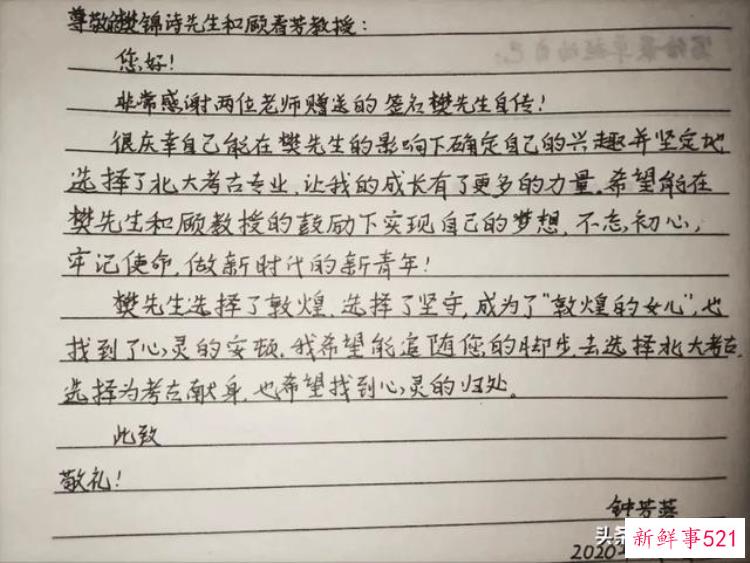 尊敬的樊锦诗先生和顾春芳教授：
您好！
非常感谢两位老师赠送的签名樊先生自传！
很庆幸自己能在樊先生的影响下确定自己的兴趣并坚定地
选择了北大考古专业，让我的成长有了更多的力量。希望能在
樊先生和顾教授的鼓励下实现自己的梦想，不忘初心，
牢记使命，做新时代的新青年！
樊先生选择了敦煌，选择了坚守，成为了“敦煌的女儿”，也
找到了心灵的安顿。我希望能追随您的脚步，去选择北大考古，
选择为考古献身，也希望找到心灵的归处。
此致
敬礼！
钟芳蓉
头条
新鲜事521
2020年